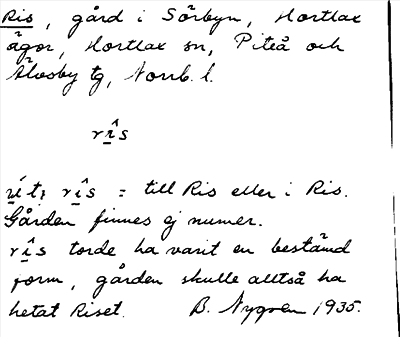 Ris, gård i Sörbyn, Hortlax
ägor, Hortlax sn, Piteå och
Älvsby tg, Norrb. l.
rı̂s
út; rı̂s = till Ris eller i Ris.
Gården finnes ej numer.
rı̂s torde ha varit en bestämd
form, gården skulle alltså ha
hetat Riset. B. Nygren 1935.